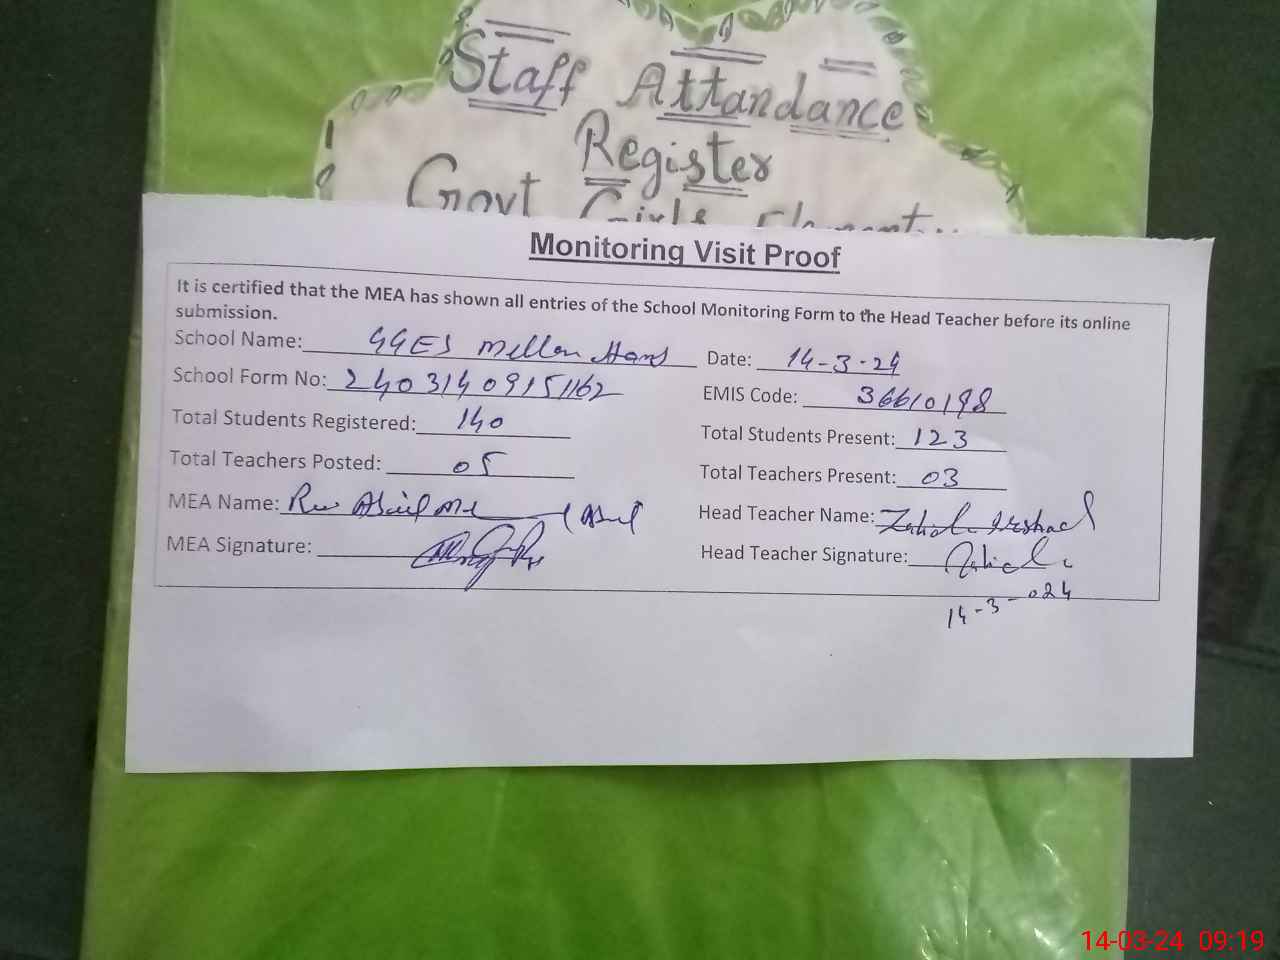 Staff Attandance
Register
Govt Girls
Monitoring Visit Proof
It is certified that the MEA has shown all entries of the School Monitoring Form to the Head Teacher before its online
submission.
School Name: GGES Date: 14-3-24
School Form No: 24031409151162 EMIS Code: 36610198
Total Students Registered: 140 Total Students Present: 123
Total Teachers Posted: 05 Total Teachers Present: 03
MEA Name: Head Teacher Name: Irshad
MEA Signature: Head Teacher Signature:
14-3-024
14-03-24 09:19